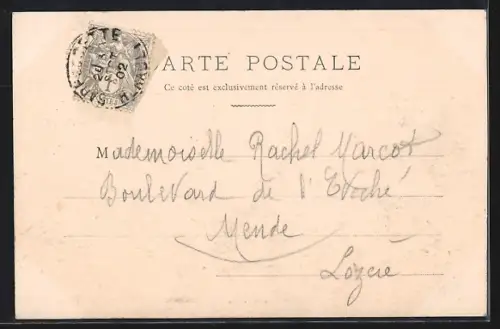 CARTE POSTALE
Ce côté est exclusivement réservé à l'adresse
Mademoiselle Rachel Marcot
Boulevard de l'Evêché
Mende
Lozère